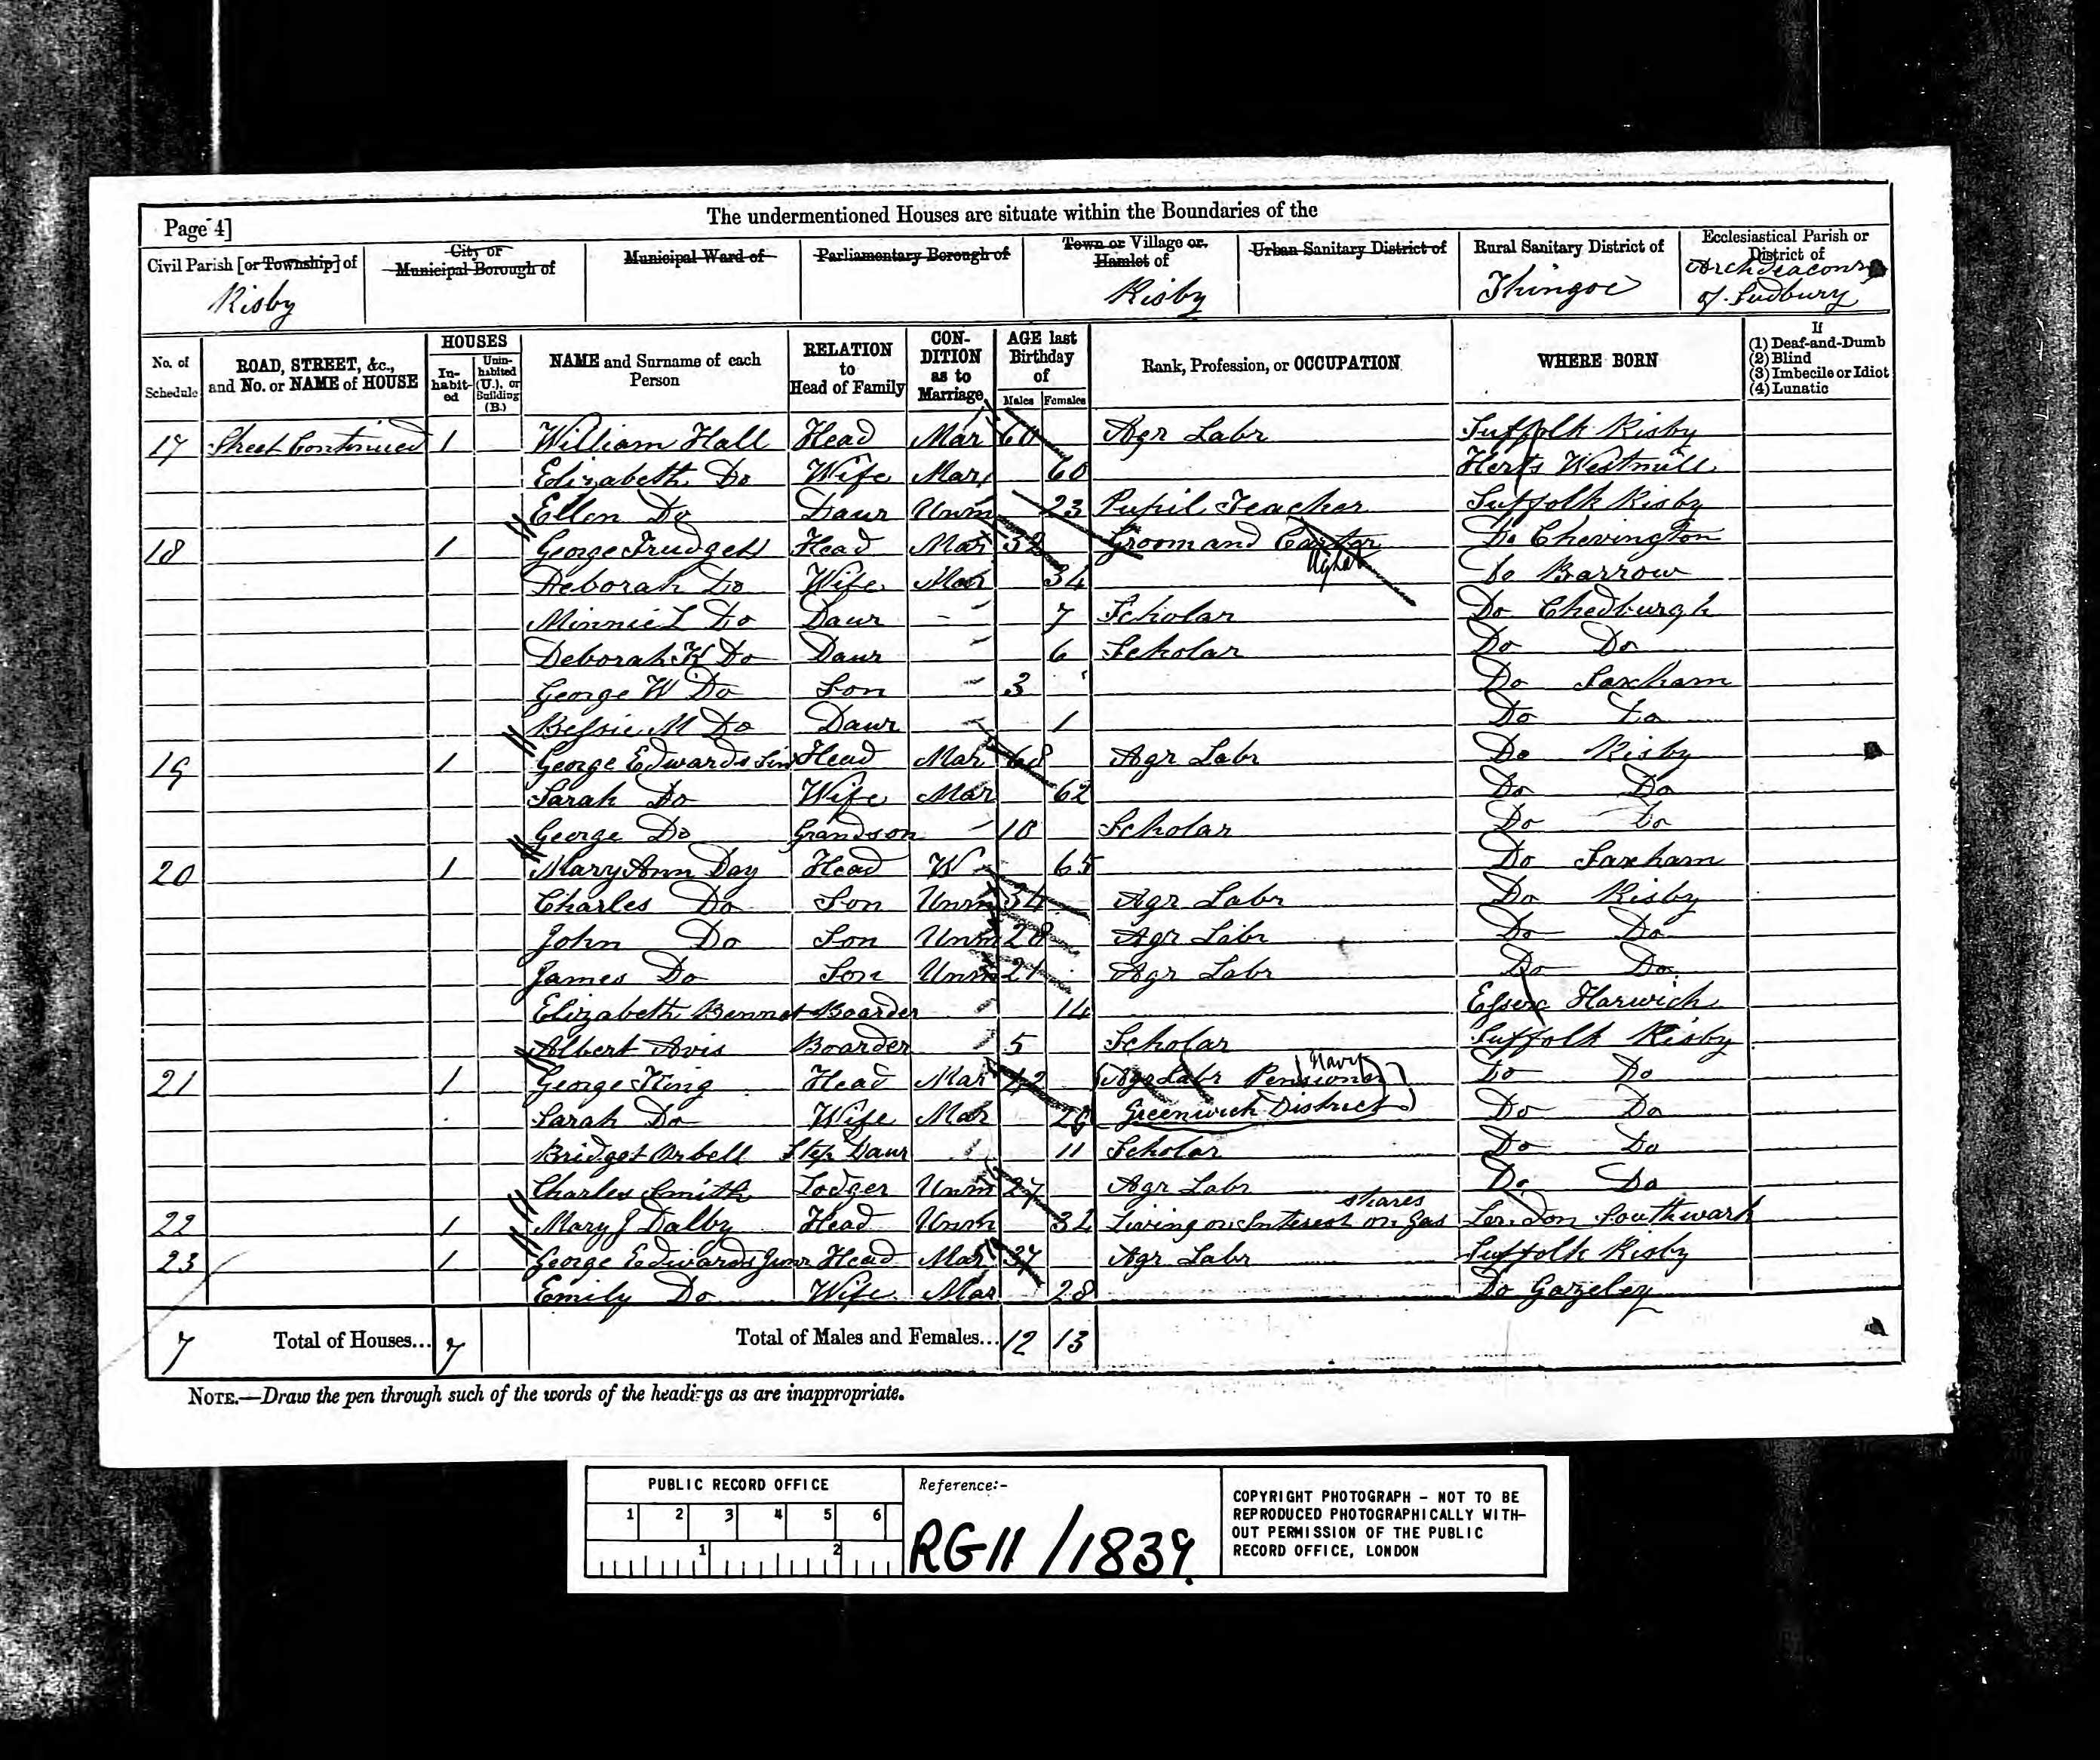 Page 4]
The undermentioned Houses are situate within the Boundaries of the
Civil Parish [or Township] of
Risby
City or
Municipal Borough of
Municipal Ward of
Parliamentary Borough of
Town or Village or
Hamlet of
Risby
Urban Sanitary District of
Rural Sanitary District of
Thingoe
Ecclesiastical Parish or
District of
Archdeaconry
of Sudbury
No. of
Schedule
ROAD, STREET, &c.,
and No. or NAME of HOUSE
HOUSES
In-
habit-
ed
Unin-
habited
(U.), or
Building
(B.)
NAME and Surname of each
Person
RELATION
to
Head of Family
CON-
DITION
as to
Marriage
AGE last
Birthday
of
Males Females
Rank, Profession, or OCCUPATION
WHERE BORN
If
(1) Deaf-and-Dumb
(2) Blind
(3) Imbecile or Idiot
(4) Lunatic
17 Street Continued 1 William Hall Head Mar 60 Agr Labr Suffolk Risby
Elizabeth Do Wife Mar 60 Herts Westmill
Ellen Do Daur Unm 23 Pupil Teacher Suffolk Risby
18 1 George Trudgett Head Mar Groom and Do Chevington
Deborah Do Wife Mar 34 Do Barrow
Minnie L Do Daur 7 Scholar Do Chedburgh
Deborah K Do Daur 6 Scholar Do Do
George W Do Son 3 Do Saxham
Bessie M Do Daur 1 Do Do
19 1 George Edwards Sin Head Mar 68 Agr Labr Do Risby
Sarah Do Wife Mar 62 Do Do
George Do Grandson 10 Scholar Do Do
20 1 Mary Ann Day Head W 65 Do Saxham
Charles Do Son Unm 34 Agr Labr Do Risby
John Do Son Unm 28 Agr Labr Do Do
James Do Son Unm 21 Agr Labr Do Do
Elizabeth Bennet Boarder 14 Essex Harwich
Albert Avis Boarder 5 Scholar Suffolk Risby
21 1 George King Head Mar 42 (Agr Labr Pensioner Navy) Do Do
Sarah Do Wife Mar Greenwich District) Do Do
Bridget Orbell Step Daur 11 Scholar Do Do
Charles Smith Lodger Unm 27 Agr Labr Do Do
shares
22 1 Mary J Dalby Head Unm 32 Living on Interest on Gas London Southwark
23 1 George Edwards Junr Head Mar 37 Agr Labr Suffolk Risby
Emily Do Wife Mar 28 Do Gazeley
7 Total of Houses... 7 Total of Males and Females... 12 13
NOTE.—Draw the pen through such of the words of the headings as are inappropriate.
PUBLIC RECORD OFFICE
1 2 3 4 5 6
1 2
Reference:-
RG11/1839
COPYRIGHT PHOTOGRAPH - NOT TO BE
REPRODUCED PHOTOGRAPHICALLY WITH-
OUT PERMISSION OF THE PUBLIC
RECORD OFFICE, LONDON